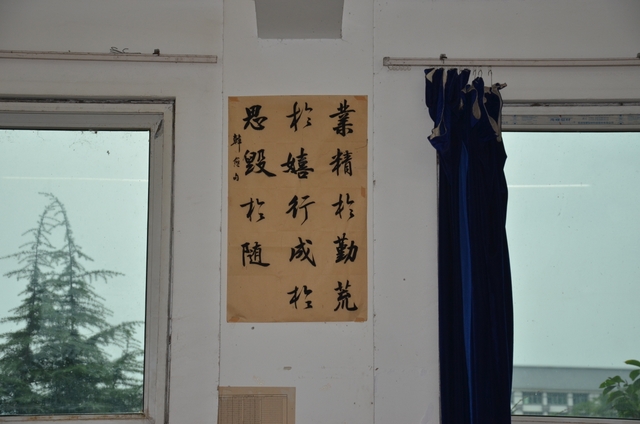 業精於勤荒
於嬉行成於
思毀於随